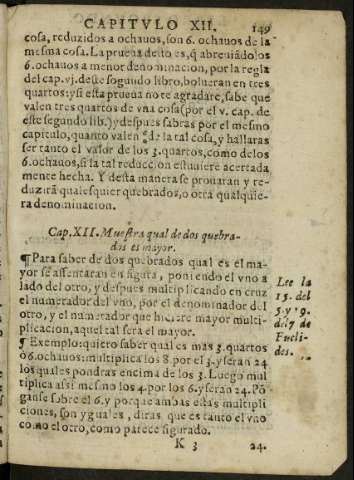 CAPITVLO XII. 149
cosa, reduzidos a ochauos, son 6. ochauos de la
mesma cosa. La prueua desto es, q̃ abreuiãdo los
6. ochauos a menor denominacion, por la regla
del cap. vj. deste segundo libro, bolueran en tres
quartos: y si esta prueua no te agradare, sabe que
valen tres quartos de vna cosa (por el v. cap. de
este segundo lib.) y despues sabras por el mesmo
capitulo, quanto valen de la tal cosa, y hallaras
ser tanto el valor de los 3. quartos, como de los
6. ochauos, si la tal reduccion estuuiere acertada
mente hecha. Y desta manera se prouaran y re-
duzirã qualesquier quebrados, o otra qualquie-
ra denominacion.
Cap. XII. Muestra qual de dos quebra-
dos es mayor.
¶ Para saber de dos quebrados qual es el ma-
yor se assentaran en figura, poniendo el vno a
lado del otro, y despues multiplicando en cruz
el numerador del vno, por el denominador del
otro, y el numerador que hiziere mayor multi-
plicacion, aquel tal sera el mayor.
Lee la
15. del
5. y 19.
del 7 de
Eucli-
des.
¶ Exemplo: quiero saber qual es mas 3. quartos
ò 6. ochauos: multiplica los 8. por el 3. y seran 24
los quales pondras encima de los 3. Luego mul
tiplica assi mesmo los 4. por los 6. y seran 24. Põ
ganse sobre el 6. y porque ambas estas multipli
ciones, son yguales, diras que es tanto el vno
como el otro, como parece figurado.
K 3 24.